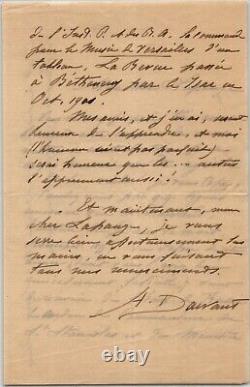 de l'Inst. P. & des B. A. la commande
pour le Musée de Versailles d'un
tableau, La Revue passée
à Bétheny par le Tsar en
Oct. 1901.
Mes amis, et j'en ai, sont
heureux de l'apprendre, et moi
(l'homme n'est pas parfait)
serai heureux que les ... autres
l'apprennent aussi!
Et maintenant, mon
cher Lapauze, je vous
serre bien affectueusement les
mains, en vous faisant
tous mes remerciements.
A. Dawant